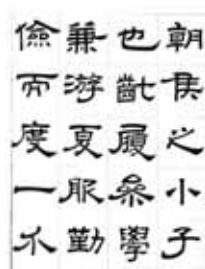 朝侯之小子
也齔履叅學
兼游夏服勤
儉而度一不